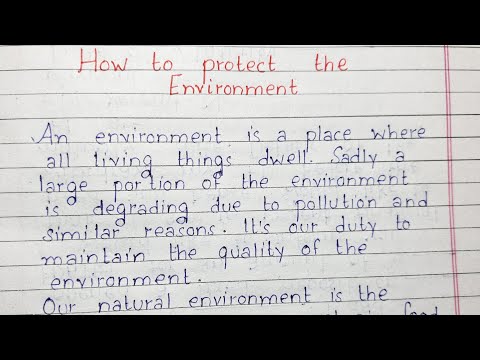 How to protect the
Environment
An environment is a place where
all living things dwell. Sadly a
large portion of the environment
is degrading due to pollution and
similar reasons. It's our duty to
maintain the quality of the
environment.
Our natural environment is the
food